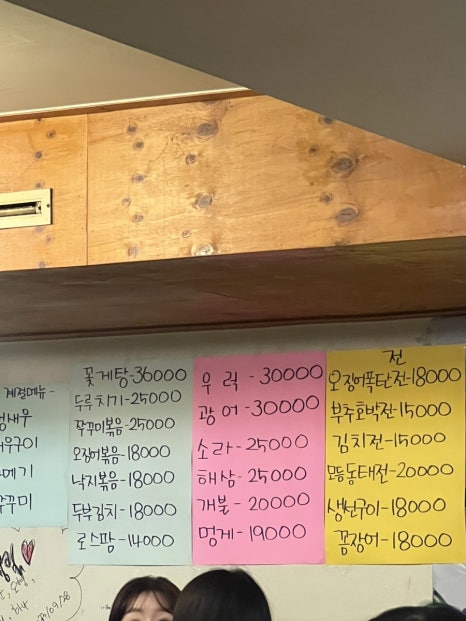 계절메뉴-
새우
우구이
메기
꾸미
꽃게탕-36000
두루치기-25000
쭈꾸미볶음-25000
오징어볶음-18000
낙지볶음-18000
두부김치-18000
로스팜-14000
우럭-30000
광어-30000
소라-25000
해삼-25000
개불-20000
멍게-19000
전
오징어폭탄전-18000
부추호박전-15000
김치전-15000
모듬동태전-20000
생선구이-18000
꼼장어-18000